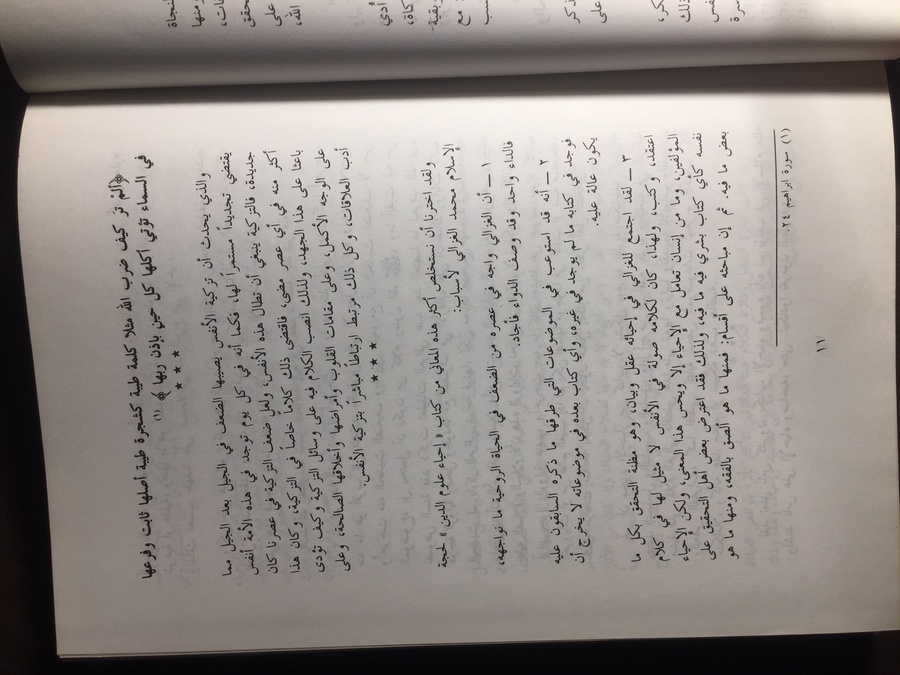 ﴿ألم تر كيف ضرب الله مثلا كلمة طيبة كشجرة طيبة أصلها ثابت وفرعها
في السماء تؤتي أكلها كل حين بإذن ربها﴾ (١)
* * *
والذي يحدث أن تزكية الأنفس يصيبها الضعف في الجيل بعد الجيل مما
يقتضي تجديداً مستمراً لها، فكما أنه في كل يوم توجد في هذه الأمة أنفس
جديدة، فالتزكية ينبغي أن تطال هذه الأنفس، ولعل ضعف التزكية في عصرنا كان
أكثر منه في أي عصر مضى، فاقتضى ذلك كلاما خاصاً في التزكية، وكان هذا
باعثا على هذا الجهد، ولذلك انصب الكلام فيه على وسائل التزكية وكيف تؤدى
على الوجه الأكمل، وعلى مقامات القلوب وأمراضها وأخلاقها الصالحة، وعلى
أدب العلاقات، وكل ذلك مرتبط ارتباطاً مباشراً بتزكية الأنفس.
* * *
ولقد اخترنا أن نستخلص أكثر هذه المعاني من كتاب «إحياء علوم الدين» لحجة
الإسلام محمد الغزالي لأسباب:
١ – أن الغزالي واجه في عصره من الضعف في الحياة الروحية ما نواجهه،
فالداء واحد وقد وصف الدواء فأجاد.
٢ – أنه قد استوعب في الموضوعات التي طرقها ما ذكره السابقون عليه
فوجد في كتابه ما لم يوجد في غيره، وأي كتاب بعده في موضوعاته لا يخرج أن
يكون عالة عليه.
٣ – لقد اجتمع للغزالي في إحيائه عقل وبيان، وهو مظنة التحقق بكل ما
اعتقد، وكتب، ولهذا، كان لكلامه صولة في الأنفس لا مثيل لها في كلام
المؤلفين: وما من إنسان تعامل مع الإحياء إلا ويحس هذا المعنى، ولكن الإحياء
نفسه كأي كتاب بشري فيه ما فيه، ولذلك فقد اعترض بعض أهل التحقيق على
بعض ما فيه. ثم إن مباحثه على أقسام: فمنها ما هو ألصق بالفقه، ومنها ما هو
(١) سورة ابراهيم ٢٤.
١١